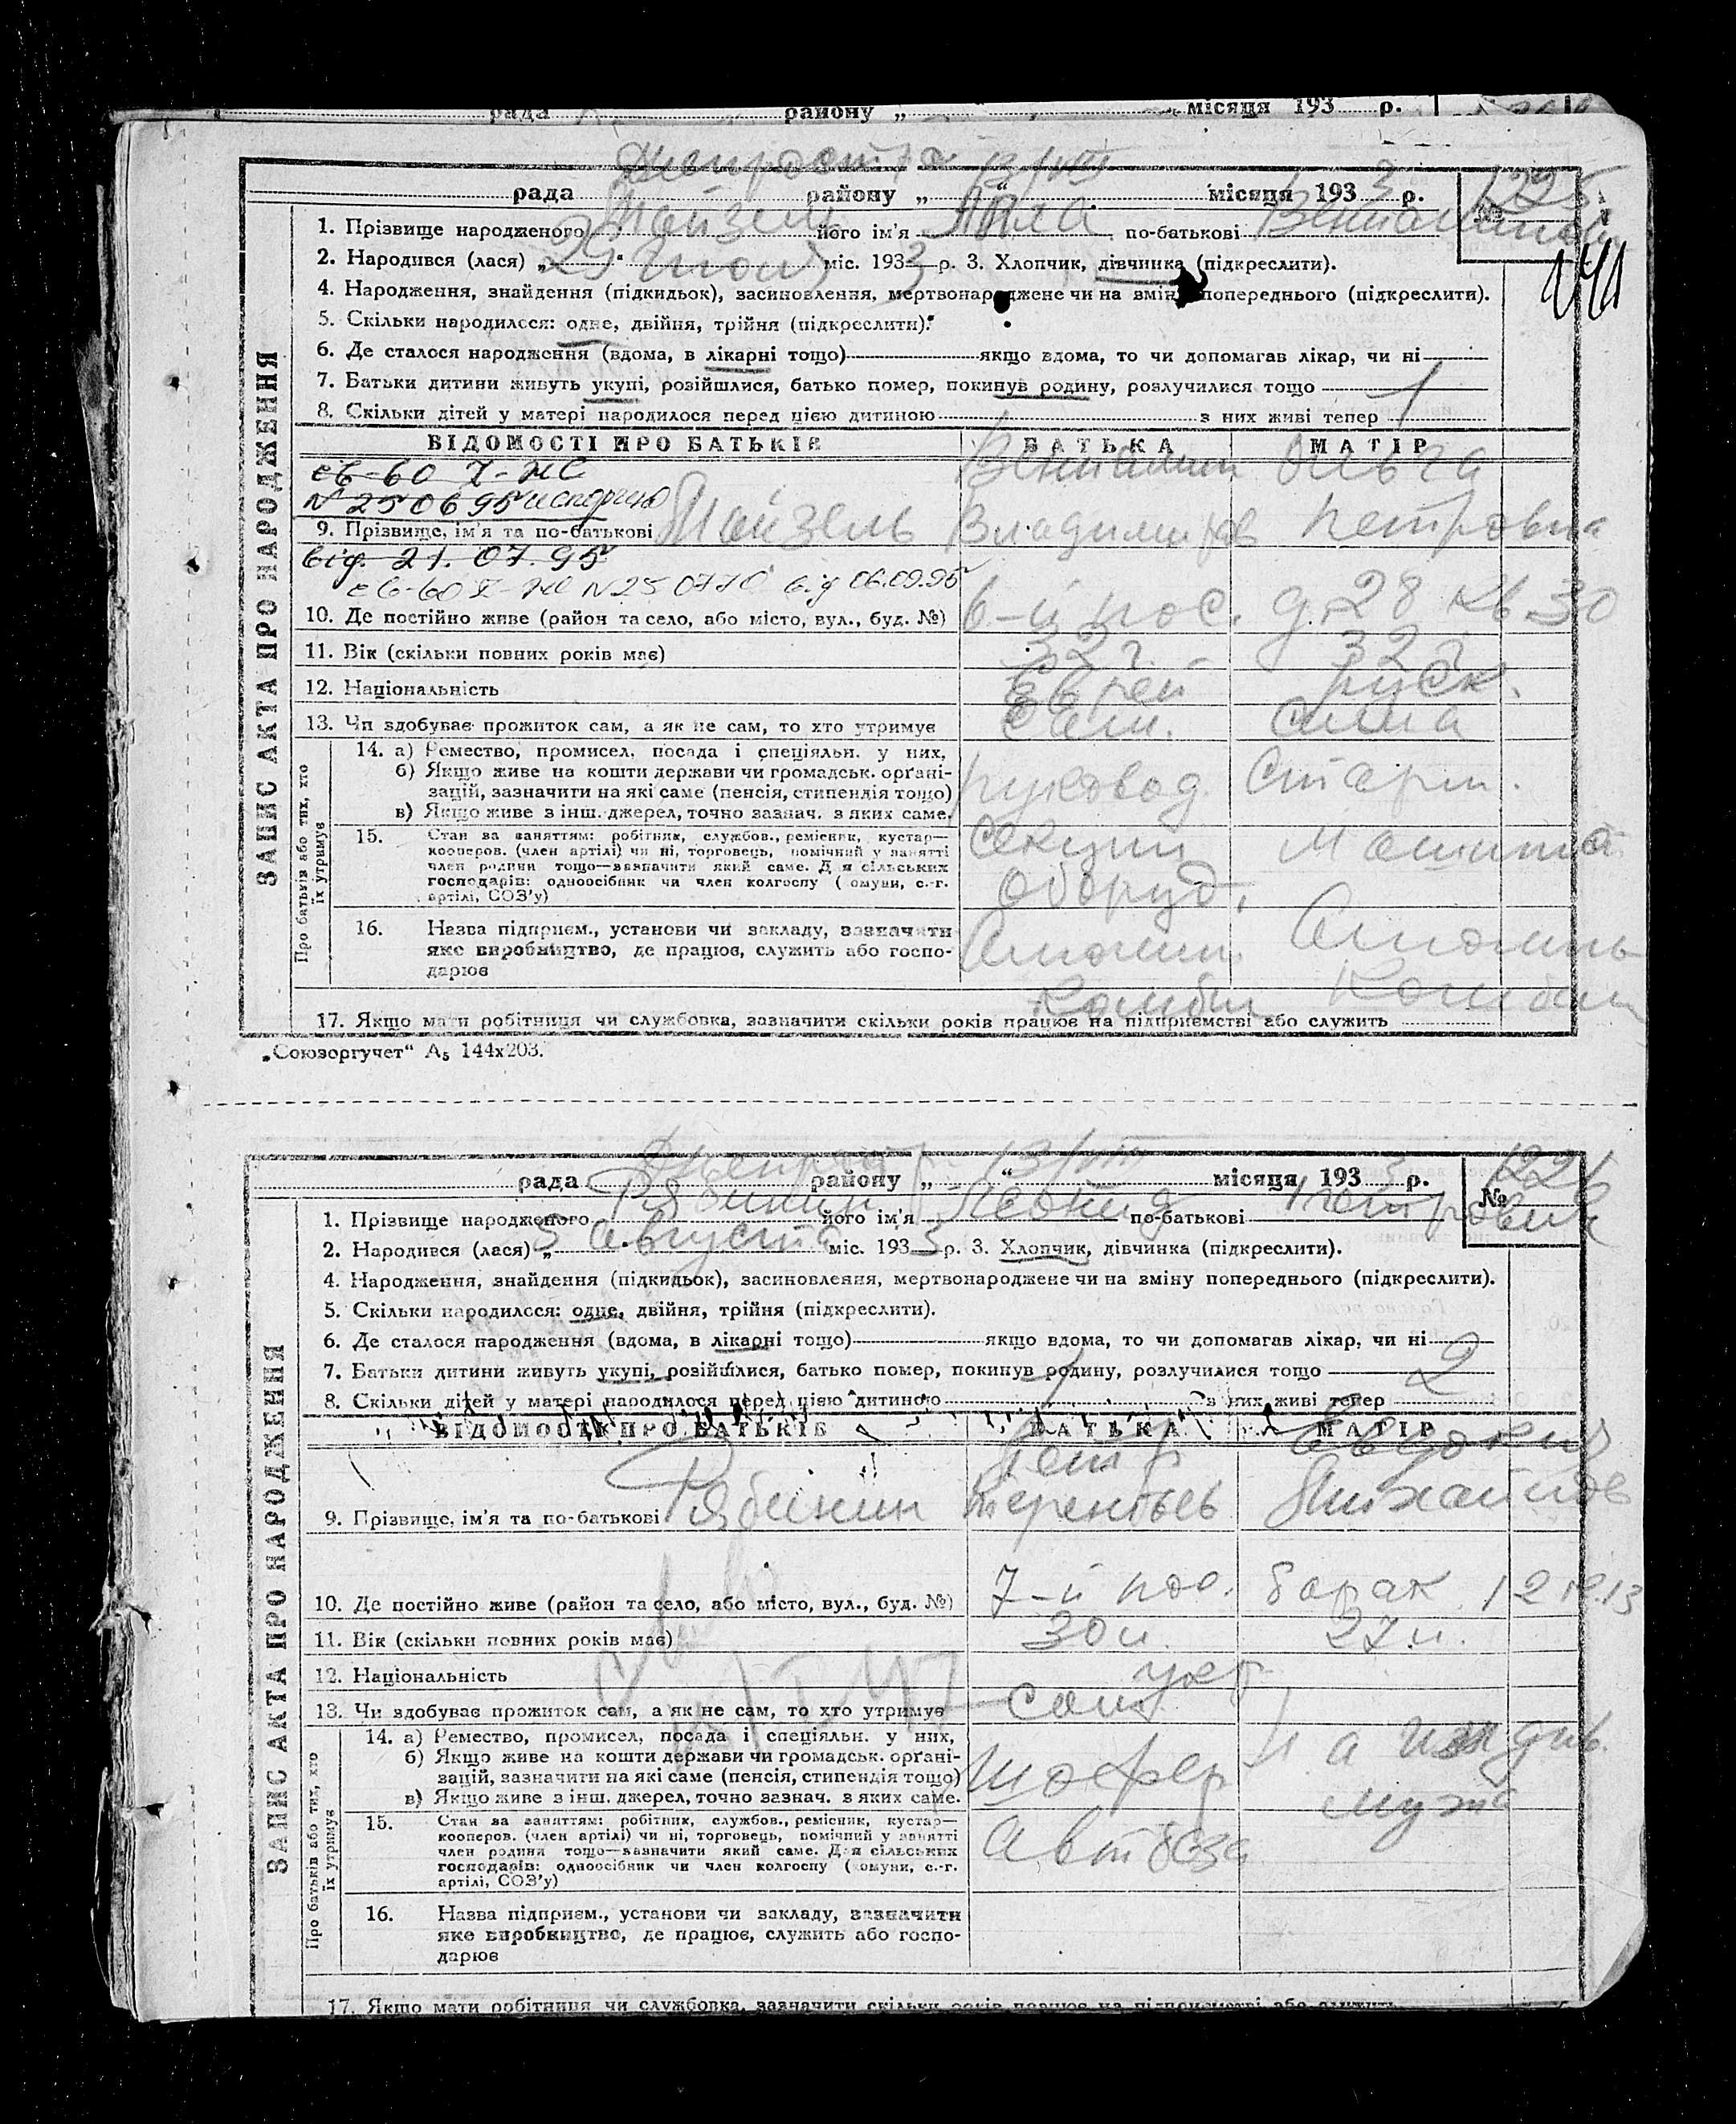 рада району „ місяця 193 р.
13/VIII
рада району „ “ місяця 1933 р. № 1225
1. Прізвище народженого Майзель його ім'я Алла по-батькові Вениаминов
2. Народився (лася) „29“ июля міс. 1933 р. 3. Хлопчик, дівчинка (підкреслити).
4. Народження, знайдення (підкидьок), засиновлення, мертвонароджене чи на зміну попереднього (підкреслити).
5. Скільки народилося: одне, двійня, трійня (підкреслити).
6. Де сталося народження (вдома, в лікарні тощо) якщо вдома, то чи допомагав лікар, чи ні
7. Батьки дитини живуть укупі, розійшлися, батько помер, покинув родину, розлучилися тощо
8. Скільки дітей у матері народилося перед цією дитиною з них живі тепер 1
ЗАПИС АКТА ПРО НАРОДЖЕННЯ
ВІДОМОСТІ ПРО БАТЬКІВ БАТЬКА МАТІР
св-60 І-ЖС
№ 250695 испорчено
Вениамин Ольга
9. Прізвище, ім'я та по-батькові Майзель Владимиров Петровна
від. 21.07.95
св-60 І-ЖС № 250770 від 06.09.95
10. Де постійно живе (район та село, або місто, вул., буд. №) 6-й пос. д. 28 кв 30
11. Вік (скільки повних років має) 32 г. 32 г
12. Національність Еврей руск.
13. Чи здобуває прожиток сам, а як не сам, то хто утримує сам. сама
Про батьків або тих, хто їх утримує
14. а) Ремество, промисел, посада і спеціяльн. у них,
б) Якщо живе на кошти держави чи громадськ. органі-
зацій, зазначити на які саме (пенсія, стипендія тощо)
в) Якщо живе з інш. джерел, точно зазнач. з яких саме.
руковод. Старш.
15. Стан за заняттям: робітник, службов., ремісник, кустар—
кооперов. (член артілі) чи ні, торговець, помічний у занятті
член родини тощо—зазначити який саме. Для сільських
господарів: одноосібник чи член колгоспу (комуни, с.-г.
артілі, СОЗ'у)
секции
оборуд.
16. Назва підприєм., установи чи закладу, зазначити
яке виробництво, де працює, служить або госпо-
дарює
Комбин Комбин
17. Якщо мати робітниця чи службовка, зазначити скільки років працює на підприємстві або служить
„Союзоргучет“ А5 144х203.
13/VIII
рада району „ “ місяця 1933 р. № 1226
1. Прізвище народженого Рябинин його ім'я Леонид по-батькові Петрович
2. Народився (лася) „3 августа міс. 1933 р. 3. Хлопчик, дівчинка (підкреслити).
4. Народження, знайдення (підкидьок), засиновлення, мертвонароджене чи на зміну попереднього (підкреслити).
5. Скільки народилося: одне, двійня, трійня (підкреслити).
6. Де сталося народження (вдома, в лікарні тощо) якщо вдома, то чи допомагав лікар, чи ні
7. Батьки дитини живуть укупі, розійшлися, батько помер, покинув родину, розлучилися тощо
8. Скільки дітей у матері народилося перед цією дитиною 1 з них живі тепер 2
ЗАПИС АКТА ПРО НАРОДЖЕННЯ
ВІДОМОСТІ ПРО БАТЬКІВ БАТЬКА МАТІР
Петр Евдокия
9. Прізвище, ім'я та по-батькові Рябинин Терентьев Михайлов
10. Де постійно живе (район та село, або місто, вул., буд. №) 7-й пос. барак 12 к.13
11. Вік (скільки повних років має) 30 л. 27 л.
12. Національність укр
13. Чи здобуває прожиток сам, а як не сам, то хто утримує сам
Про батьків або тих, хто їх утримує
14. а) Ремество, промисел, посада і спеціяльн. у них,
б) Якщо живе на кошти держави чи громадськ. органі-
зацій, зазначити на які саме (пенсія, стипендія тощо)
в) Якщо живе з інш. джерел, точно зазнач. з яких саме.
шофер на иждив. мужа
15. Стан за заняттям: робітник, службов., ремісник, кустар—
кооперов. (член артілі) чи ні, торговець, помічний у занятті
член родини тощо—зазначити який саме. Для сільських
господарів: одноосібник чи член колгоспу (комуни, с.-г.
артілі, СОЗ'у)
Автобаза
16. Назва підприєм., установи чи закладу, зазначити
яке виробництво, де працює, служить або госпо-
дарює
17. Якщо мати робітниця чи службовка, зазначити скільки років працює на підприємстві або служить